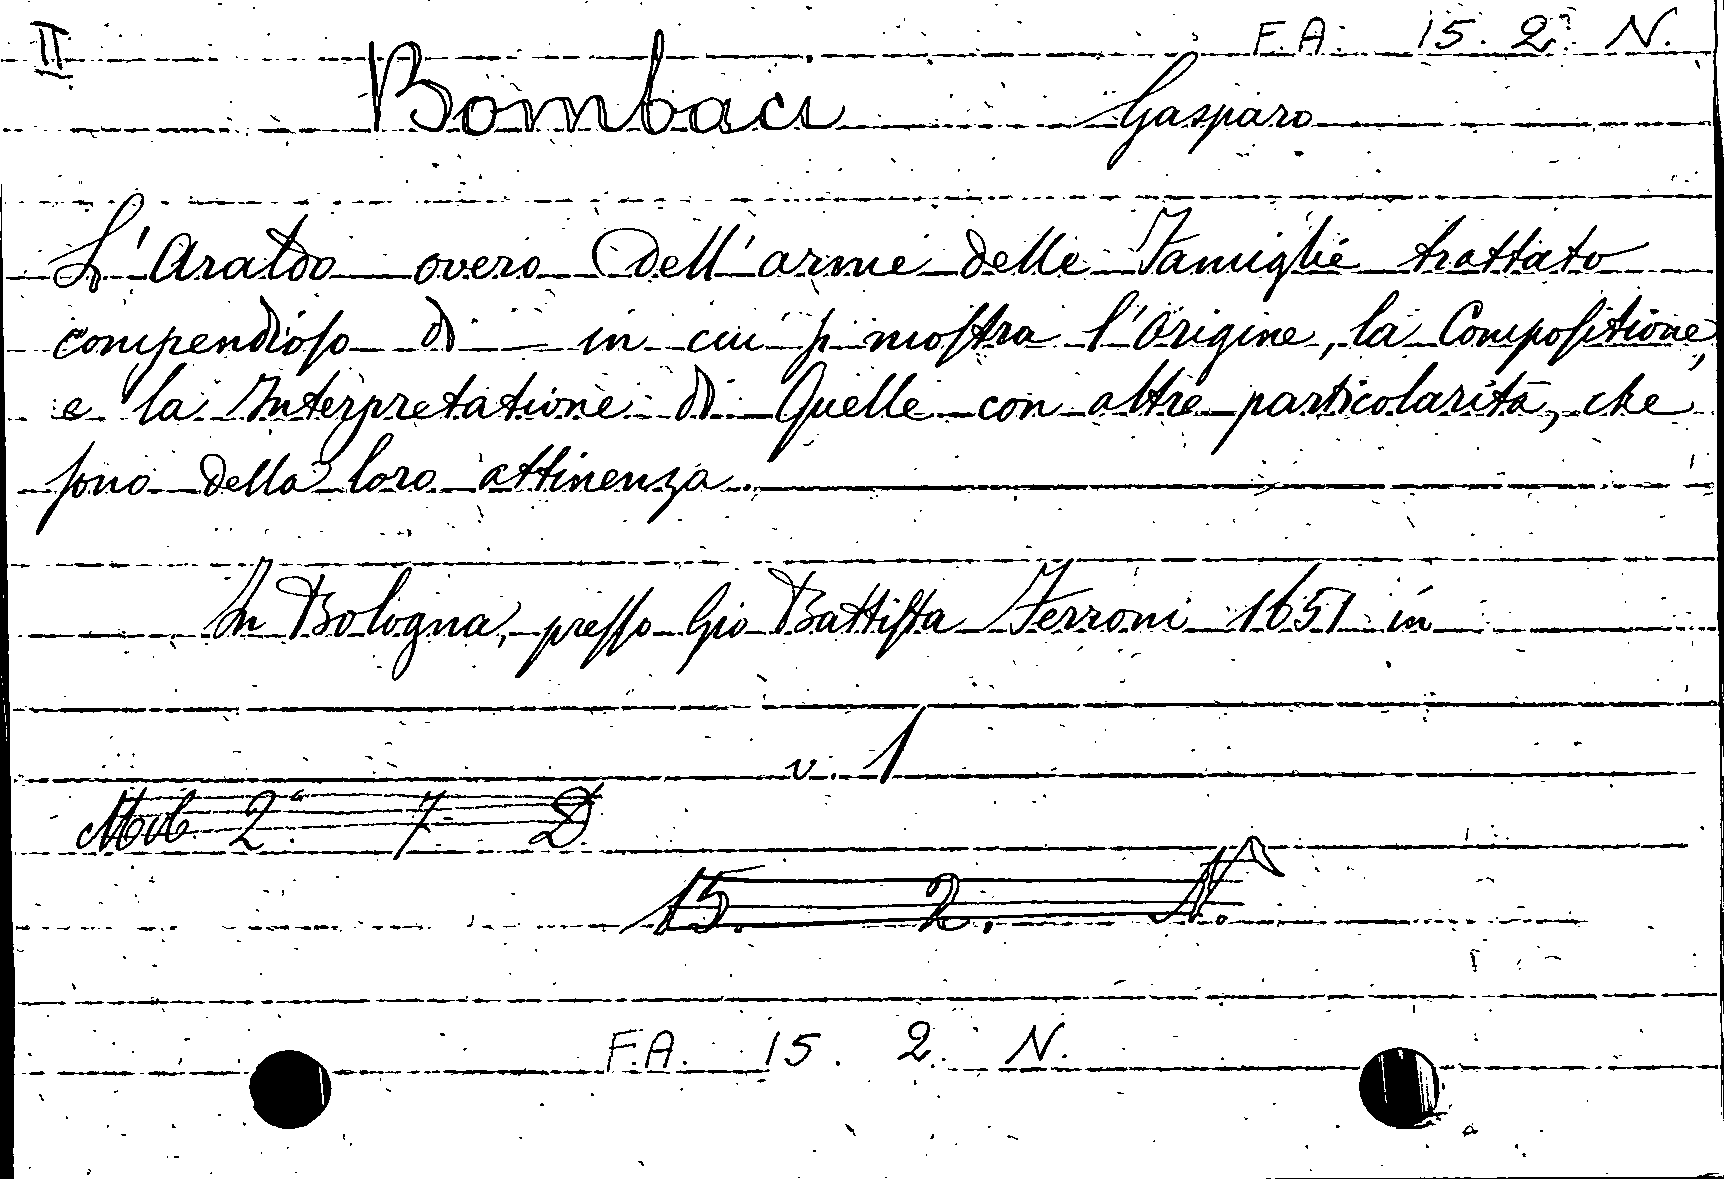 II F.A. 15. 2. N.
Bombaci Gasparo
L'Araldo overo Dell'arme delle Famiglie trattato
compendioſo di — in cui ſi moſtra l'Origine, la Compoſitione,
e la Interpretatione di Quelle con altre particolarità, che
ſono della loro attinenza.
In Bologna, preſſo Gio Battiſta Ferroni 1651 in
v. 1
Mob 2.a 7 D.
15. 2. N.
F.A. 15. 2. N.